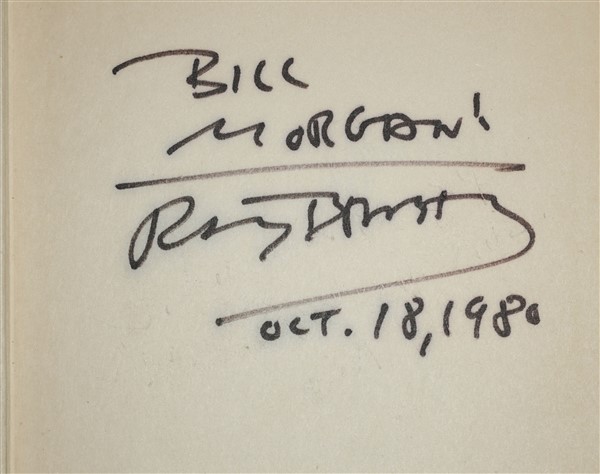 BILL
MORGAN!
Ray Bradbury
OCT. 18, 1980